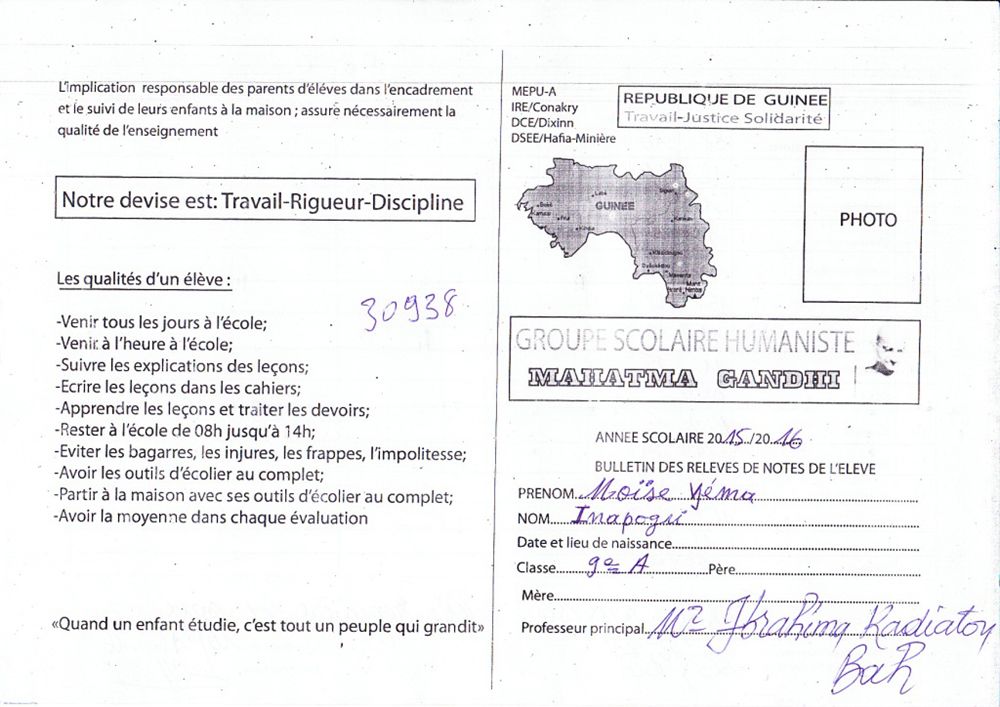 L'implication responsable des parents d'éléves dans l'encadrement
et le suivi de leurs enfants à la maison ; assuré nécessairement la
qualité de l'enseignement
Notre devise est: Travail-Rigueur-Discipline
Les qualités d'un élève :
30938
-Venir tous les jours à l'école;
-Venir à l'heure à l'école;
-Suivre les explications des leçons;
-Ecrire les leçons dans les cahiers;
-Apprendre les leçons et traiter les devoirs;
-Rester à l'école de 08h jusqu'à 14h;
-Eviter les bagarres, les injures, les frappes, l'impolitesse;
-Avoir les outils d'écolier au complet;
-Partir à la maison avec ses outils d'écolier au complet;
-Avoir la moyenne dans chaque évaluation
«Quand un enfant étudie, c'est tout un peuple qui grandit»
MEPU-A
IRE/Conakry
DCE/Dixinn
DSEE/Hafia-Minière
REPUBLIQUE DE GUINEE
Travail-Justice Solidarité
GUINEE
PHOTO
GROUPE SCOLAIRE HUMANISTE
MAHATMA GANDHI
ANNEE SCOLAIRE 2015/2016
BULLETIN DES RELEVES DE NOTES DE L'ELEVE
PRENOM Moïse Yéma
NOM Inapogui
Date et lieu de naissance
Classe 9e A Père
Mère
Professeur principal Mr Ibrahima Kadiatou
Bah